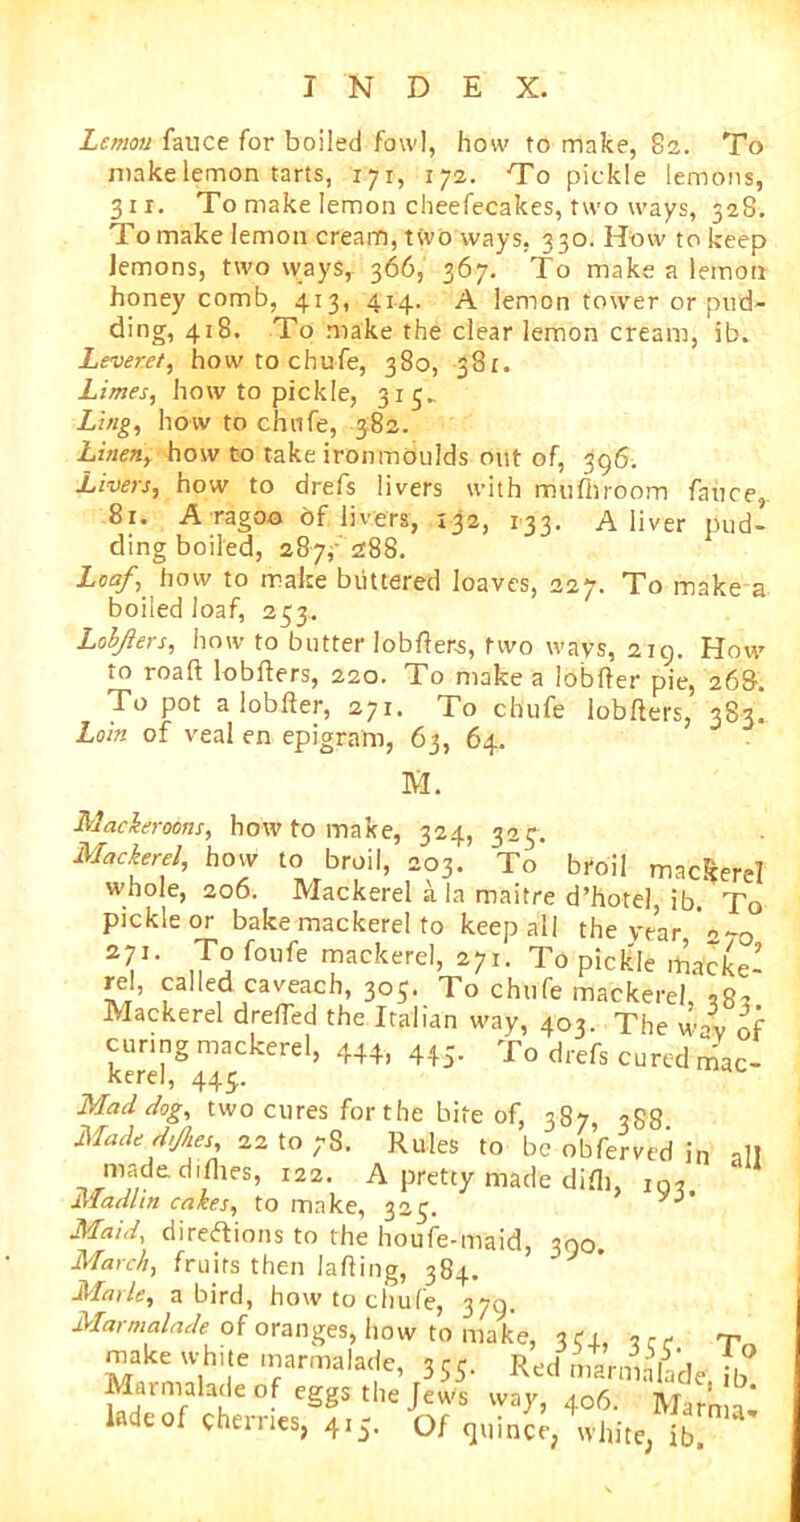 INDEX.
Lemon ſauce for boiled fowl, how to make, 82. To
make lemon tarts, 171, 172. To pickle lemons,
311. To make lemon cheeſecakes, two ways, 328.
To make lemon cream, two ways, 330. How to keep
lemons, two ways, 366, 367. To make a lemon
honey comb, 413, 414. A lemon tower or pud-
ding, 418. To make the clear lemon cream, ib.
Leveret, how to chuſe, 380, 381.
Limes, how to pickle, 315.
Ling, how to chuſe, 382.
Linen, how to take ironmoulds out of, 396.
Livers, how to dreſs livers with muſhroom ſauce,
81. A ragoo of livers, 132, 133. A liver pud-
ding boiled, 287, 288.
Loaf, how to make buttered loaves, 227. To make a
boiled loaf, 253.
Lobſters, how to butter lobſters, two ways, 219. How
to roaſt lobſters, 220. To make a lobſter pie, 268.
To pot a lobſter, 271. To chuſe lobſters, 383.
Loin of veal en epigram, 63, 64.
M.
Mackeroons, how to make, 324, 325.
Mackerel, how to broil, 203. To broil mackerel
whole, 206. Mackerel à la maitre d'hotel, ib. To
pickle or bake mackerel to keep all the year, 270,
271. To ſouſe mackerel, 271. To pickle macke-
rel, called caveach, 305. To chuſe mackerel, 383.
Mackerel dreſſed the Italian way, 403. The way of
curing mackerel, 444, 445. To dreſs cured mac-
kerel, 445.
Mad dog, two cures for the bite of, 387, 388.
Made diſhes, 22 to 78. Rules to be obſerved in all
made diſhes, 122. A pretty made diſh, 193.
Madlin cakes, to make, 325.
Maid, directions to the houſe-maid, 390.
March, fruits then laſting, 384.
Marle, a bird, how to chuſe, 379.
Marmalade of oranges, how to make, 354, 355. To
make white marmalade, 355. Red marmalade, ib.
Marmalade of eggs the Jews way, 406. Marma-
lade of cherries, 415. Of quince, white, ib.